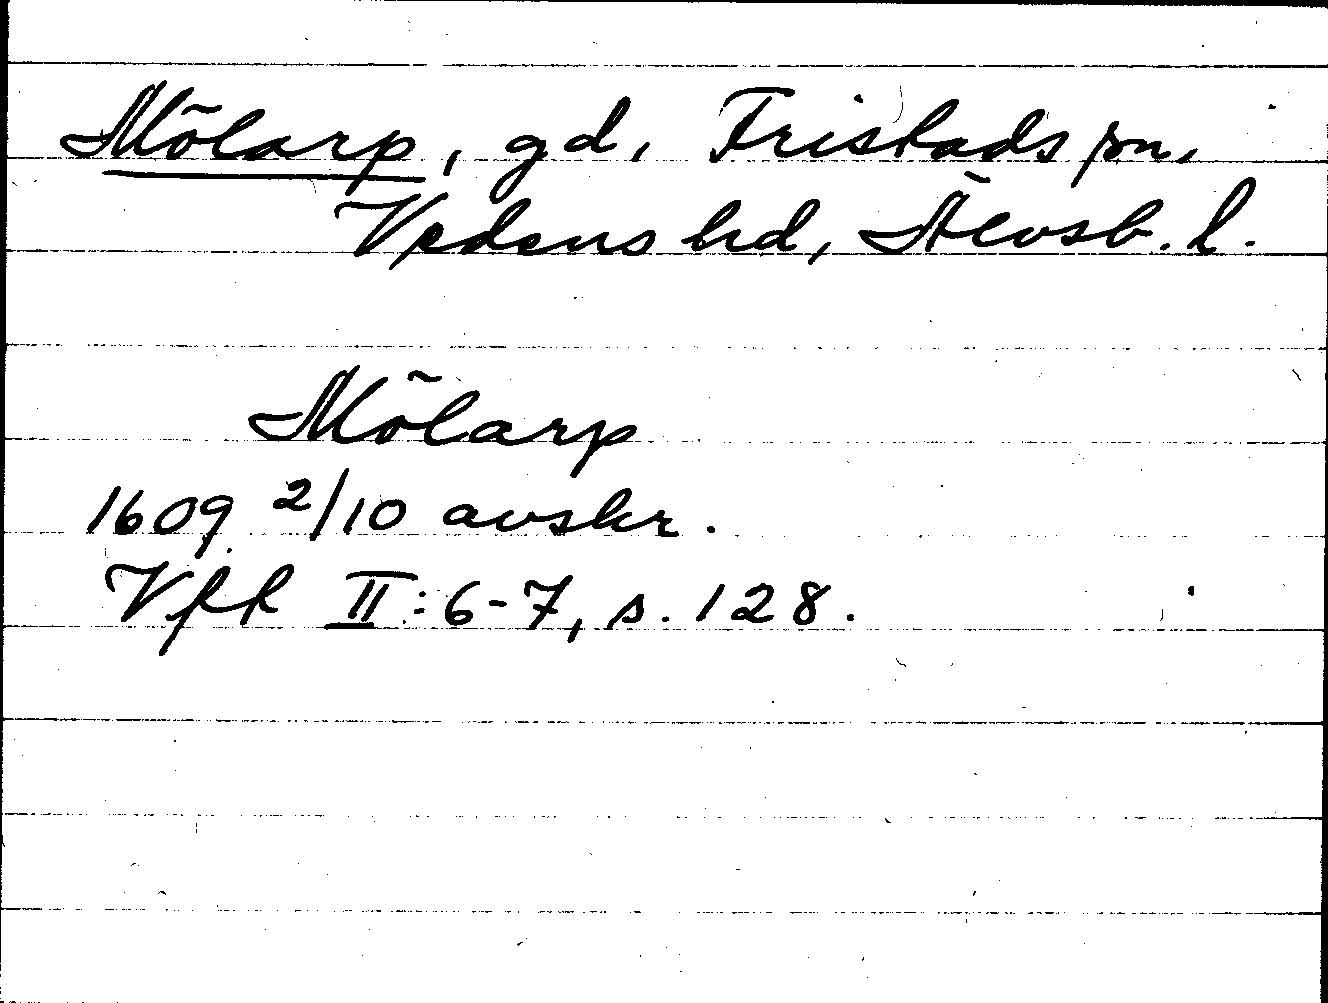 Mölarp, gd, Fristads sn,
Vedens hd, Älvsb. l.
Mölarp
1609 2/10 avskr.
Vfk II: 6-7, s. 128.